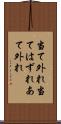 当て外れ当
てはずれあ
て外れ